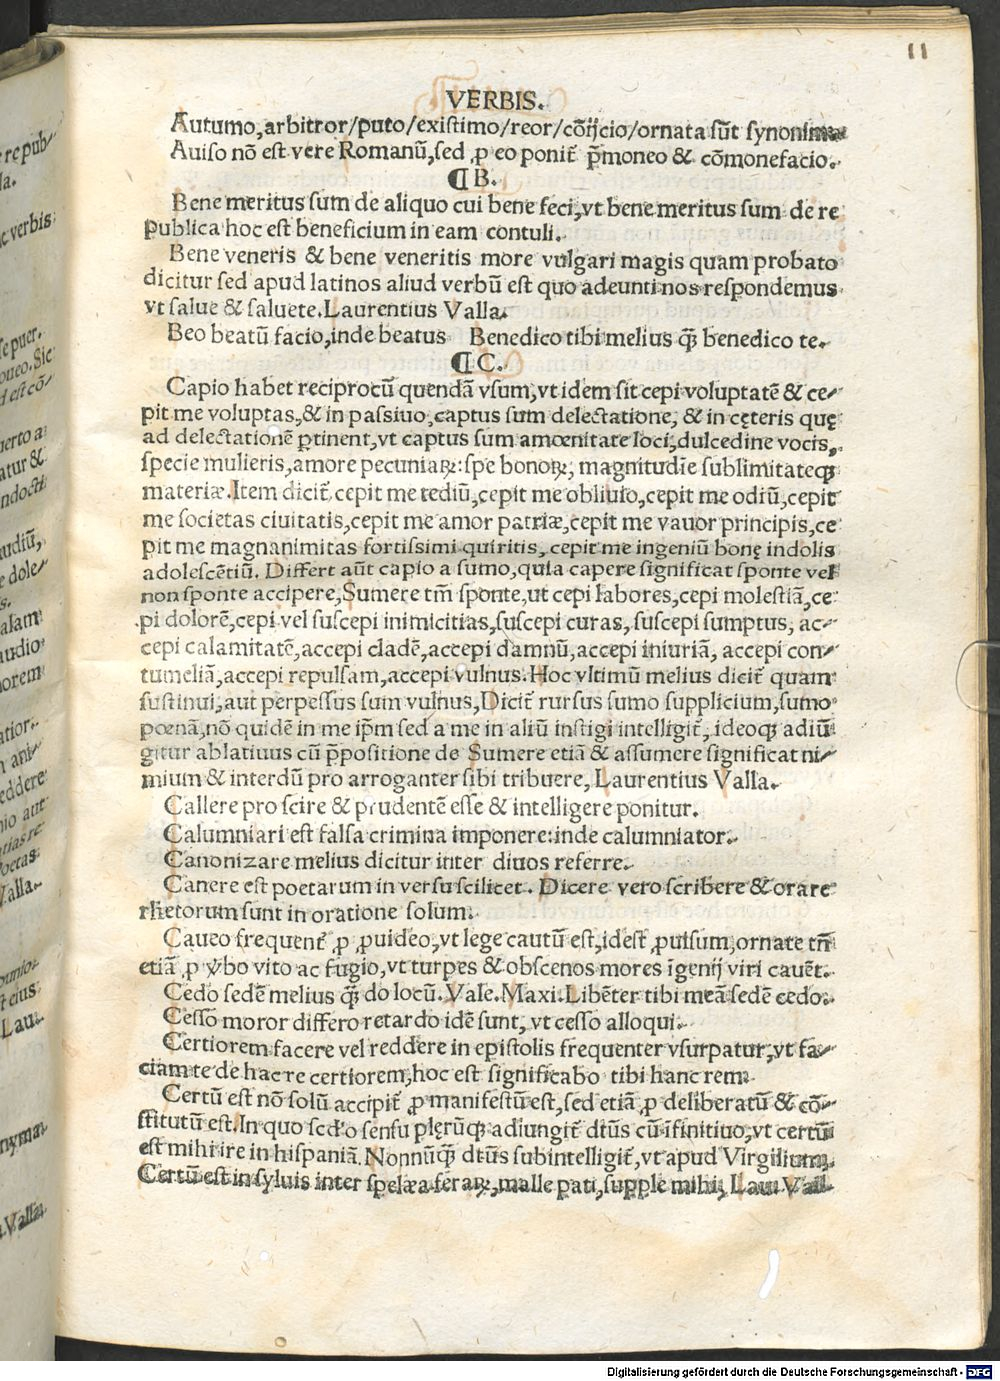 11
VERBIS.
Autumo,arbitror/puto/existimo/reor/cōijcio/ornata sūt synonima
Auiso nō est vere Romanū,sed ꝓ eo ponit᷑ p̄moneo & cōmonefacio.
¶B.
Bene meritus sum de aliquo cui bene feci,vt bene meritus sum de re
publica hoc est beneficium in eam contuli.
Bene veneris & bene veneritis more vulgari magis quam probato
dicitur sed apud latinos aliud verbū est quo adeunti nos respondemus
vt salue & saluete.Laurentius Valla.
Beo beatū facio,inde beatus Benedico tibi melius q̄ȝ benedico te.
¶C.
Capio habet reciprocū quendā vsum,vt idem sit cepi voluptatē & ce-
pit me voluptas,& in passiuo,captus sum delectatione, & in cęteris quę
ad delectationē ꝑtinent,vt captus sum amœnitate loci,dulcedine vocis,
specie mulieris,amore pecuniaꝝ:spe bonoꝝ, magnitudīe sublimitateqȝ
materiæ.Item dicit᷑ cepit me tediū,cepit me obliuio,cepit me odiū,cepit
me societas ciuitatis,cepit me amor patriæ,cepit me vauor principis,ce
pit me magnanimitas fortissimi quiritis,cepit me ingeniū bonę indolis
adolescētiū. Differt aūt capio a sumo,quia capere significat sponte vel
non sponte accipere,Sumere tm̄ sponte,ut cepi labores,cepi molestiā,ce
pi dolorē,cepi vel suscepi inimicitias,suscepi curas, suscepi sumptus, ac-
cepi calamitatē,accepi cladē,accepi damnū,accepi iniuriā, accepi con-
tumeliā,accepi repulsam,accepi vulnus.Hoc vltimū melius dicit᷑ quam
sustinui,aut perpessus sum vulnus,Dicit᷑ rursus sumo supplicium,sumo
pœnā,nō quidē in me ip̄m sed a me in aliū instigi intelligit᷑, ideoqȝ adiū
gitur ablatiuus cū p̄positione de Sumere etiā & assumere significat ni-
mium & interdū pro arroganter sibi tribuere, Laurentius Valla.
Callere pro scire & prudentē esse & intelligere ponitur.
Calumniari est falsa crimina imponere:inde calumniator.
Canonizare melius dicitur inter diuos referre.
Canere est poetarum in versu scilicet. Dicere vero scribere & orare
rhetorum sunt in oratione solum.
Caueo frequent᷑ ꝓ ꝓuideo,vt lege cautū est,idest ꝓuisum,ornate tm̄
etiā ꝓ v̄bo vito ac fugio,vt turpes & obscenos mores īgenij viri cauēt.
Cedo sedē melius q̄ȝ do locū.Vale.Maxi.Libēter tibi meā sedē cedo.
Cesso moror differo retardo idē sunt, vt cesso alloqui.
Certiorem facere vel reddere in epistolis frequenter vsurpatur,vt fa-
ciam te de hac re certiorem,hoc est significabo tibi hanc rem.
Certū est nō solū accipit᷑ ꝓ manifestū est,sed etiā ꝓ deliberatū & cō-
stitutū est.In quo scd'o sensu plęrūqȝ adiungit᷑ dt̄us cū īfinitiuo,vt certū
est mihi ire in hispaniā.Nonnūq̄ȝ dt̄us subintelligit᷑,vt apud Virgilium,
Certū est in syluis inter spelæa feraꝝ,malle pati,supple mihi, Lau.Vall.
Digitalisierung gefördert durch die Deutsche Forschungsgemeinschaft - DFG